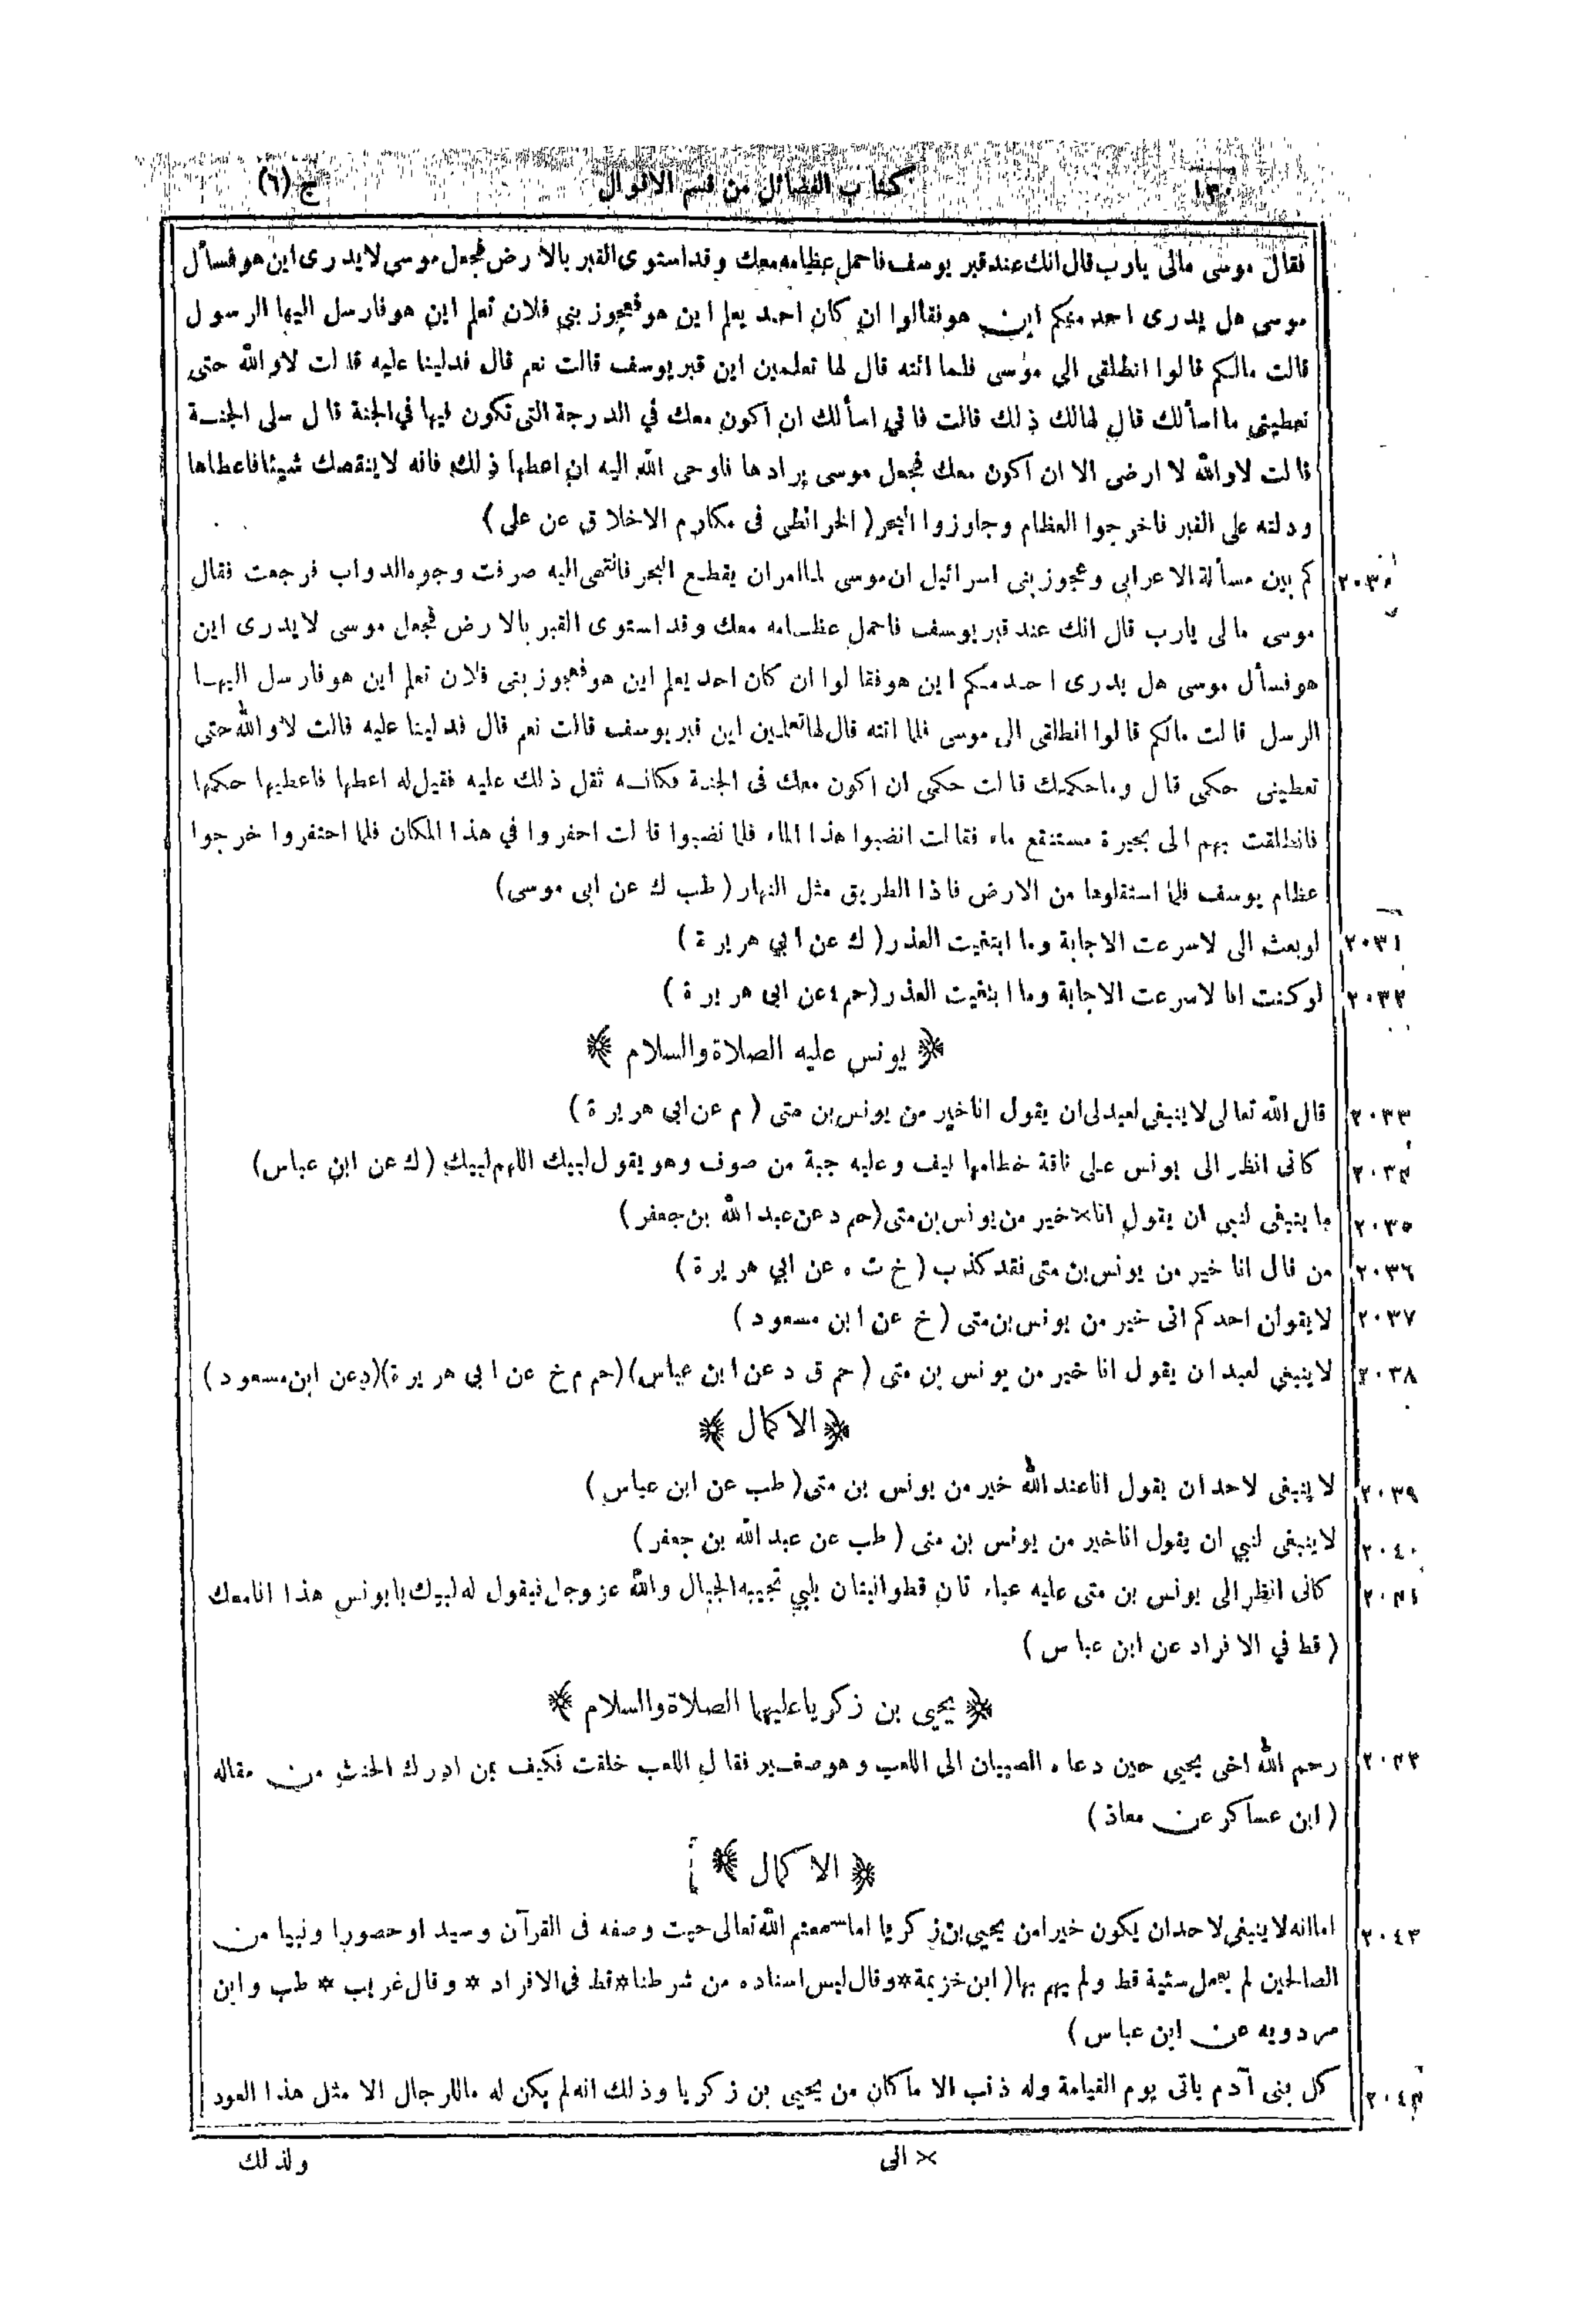 ١٣٠ كتاب الفضائل من قسم الاقوال ج (٦)
فقال موسى مالى يارب قال انك عند قبر يوسف فاحمل عظامه معك وقد استوى القبر بالارض فجعل موسى لايدرى اين هو فسأل
موسى هل يدرى احد منكم اين هو فقالوا ان كان احد يعلم اين هو فعجوز بني فلان تعلم اين هو فارسل اليها الرسول
قالت مالكم قالوا انطلقى الى موسى فلما اتته قال لها تعلمين اين قبر يوسف قالت نعم قال فدلينا عليه قالت لا والله حتى
تعطيني ما اسألك قال لها لك ذلك قالت فاني اسألك ان اكون معك في الدرجة التى تكون فيها في الجنة قال سلى الجنة
قالت لا والله لا ارضى الا ان اكون معك فجعل موسى يرادها فاوحى الله اليه ان اعطها ذلك فانه لاينقصك شيئا فاعطاها
ودلته على القبر فاخرجوا العظام وجاوزوا البحر (الخرائطى فى مكارم الاخلاق عن على)
٢٠٣٠ كم بين مسألة الاعرابى وعجوز بنى اسرائيل ان موسى لما امر ان يقطع البحر فانتهى اليه صرفت وجوه الدواب فرجعت فقال
موسى مالى يارب قال انك عند قبر يوسف فاحمل عظامه معك وقد استوى القبر بالارض فجعل موسى لايدرى اين
هو فسأل موسى هل يدرى احد منكم اين هو فقالوا ان كان احد يعلم اين هو فعجوز بنى فلان تعلم اين هو فارسل اليها
الرسل قالت مالكم قالوا انطلقى الى موسى فلما اتته قال لها تعلمين اين قبر يوسف قالت نعم قال فدلينا عليه قالت لا والله حتى
تعطينى حكمى قال وما حكمك قالت حكمى ان اكون معك فى الجنة فكانه ثقل ذلك عليه فقيل له اعطها فاعطيها حكمها
فانطلقت بهم الى بحيرة مستنقع ماء فقالت انضبوا هذا الماء فلما نضبوا قالت احفروا في هذا المكان فلما احتفروا خرجوا
عظام يوسف فلما استقلوها من الارض فاذا الطريق مثل النهار (طب ك عن ابى موسى)
٢٠٣١ لوبعث الى لاسرعت الاجابة وما ابتغيت العذر (ك عن ابي هريرة)
٢٠٣٢ لوكنت انا لاسرعت الاجابة وما ابتغيت العذر (حم ٤ عن ابى هريرة)
﴿ يونس عليه الصلاة والسلام ﴾
٢٠٣٣ قال الله تعالى لاينبغى لعبد لى ان يقول انا خير من يونس بن متى (م عن ابى هريرة)
٢٠٣٤ كانى انظر الى يونس على ناقة خطامها ليف وعليه جبة من صوف وهو يقول لبيك اللهم لبيك (ك عن ابن عباس)
٢٠٣٥ ما ينبغى لنبي ان يقول انا× خير من يونس بن متى (حم د عن عبد الله بن جعفر)
٢٠٣٦ من قال انا خير من يونس بن متى فقد كذب (خ ت ه عن ابي هريرة)
٢٠٣٧ لايقولن احدكم انى خير من يونس بن متى (خ عن ابن مسعود)
٢٠٣٨ لاينبغي لعبد ان يقول انا خير من يونس بن متى (حم ق د عن ابن عباس)(حم م خ عن ابي هريرة)(د عن ابن مسعود)
﴿ الاكمال ﴾
٢٠٣٩ لا ينبغى لاحد ان يقول انا عند الله خير من يونس بن متى (طب عن ابن عباس)
٢٠٤٠ لاينبغى لنبي ان يقول انا خير من يونس بن متى (طب عن عبد الله بن جعفر)
٢٠٤١ كانى انظر الى يونس بن متى عليه عباءتان قطوانيتان يلبي تجيبه الجبال والله عزوجل فيقول له لبيك يا يونس هذا انا معك
(قط في الافراد عن ابن عباس)
﴿ يحيى بن زكريا عليهما الصلاة والسلام ﴾
٢٠٤٢ رحم الله اخى يحيى حين دعاه الصبيان الى اللعب وهو صغير فقال اللعب خلقت فكيف بمن ادرك الحنث من مقاله
(ابن عساكر عن معاذ)
﴿ الاكمال ﴾
٢٠٤٣ اما انه لاينبغى لاحد ان يكون خيرا من يحيى بن زكريا اما سمعتم الله تعالى حيث وصفه فى القرآن وسيدا وحصورا ونبيا من
الصالحين لم يعمل سئية قط ولم يهم بها (ابن خزيمة * وقال ليس اسناده من شرطنا * قط فى الافراد * وقال غريب * طب وابن
مردويه عن ابن عباس)
٢٠٤٤ كل بنى آدم ياتى يوم القيامة وله ذنب الا ما كان من يحيى بن زكريا وذلك انه لم يكن له ما للرجال الا مثل هذا العود
× الى
ولذلك